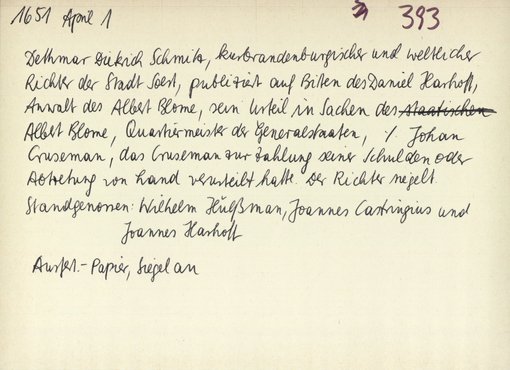 1651 April 1
393
Dethmar Dietrich Schmitz, kurbrandenburgischer und weltlicher
Richter der Stadt Soest, publiziert auf Bitten des Daniel Harhoff,
Anwalt des Albert Blome, sein Urteil in Sachen des staatischen
Albert Blome, Quartiermeister der Generalstaaten, ./. Johan
Cruseman, das Cruseman zur Zahlung seiner Schulden oder
Abtretung von Land verurteilt hatte. Der Richter siegelt.
Standgenossen: Wilhelm Hülßman, Joannes Castringius und
Joannes Harhoff
Ausfert.-Papier, Siegel an